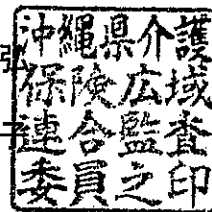 沖縄県介護
保険広域
連合監査
委員之印